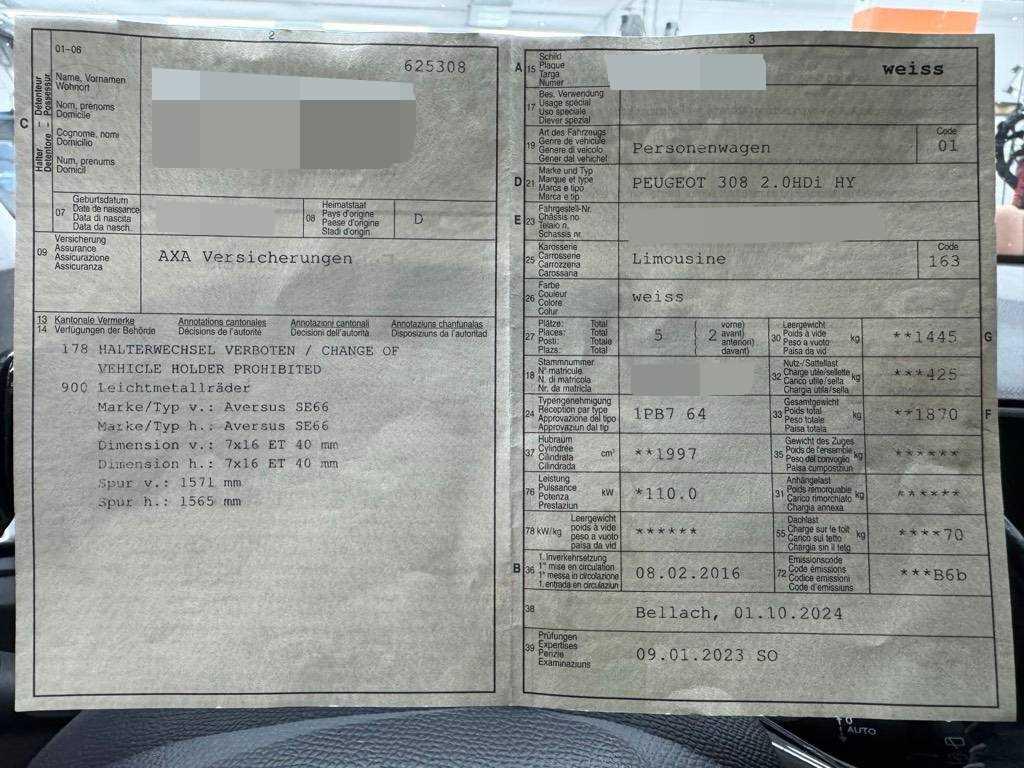 2
01-06
625308
Détenteur Possessur
Halter Detentore
C
Name, Vornamen
Wohnort
Nom, prénoms
Domicile
Cognome, nomi
Domicilio
Num, prenums
Domicil
07
Geburtsdatum
Date de naissance
Data di nascita
Data da nasch.
08
Heimatstaat
Pays d'origine
Paese d'origine
Stadi d'origin
D
09
Versicherung
Assurance
Assicurazione
Assicuranza
AXA Versicherungen
13 Kantonale Vermerke Annotations cantonales Annotazioni cantonali Annotaziuns chantunalas
14 Verfügungen der Behörde Décisions de l'autorité Decisioni dell'autorità Disposiziuns da l'autoritad
178 HALTERWECHSEL VERBOTEN / CHANGE OF
VEHICLE HOLDER PROHIBITED
900 Leichtmetallräder
Marke/Typ v.: Aversus SE66
Marke/Typ h.: Aversus SE66
Dimension v.: 7x16 ET 40 mm
Dimension h.: 7x16 ET 40 mm
Spur v.: 1571 mm
Spur h.: 1565 mm
3
A 15
Schild
Plaque
Targa
Numer
weiss
17
Bes. Verwendung
Usage spécial
Uso speciale
Diever spezial
19
Art des Fahrzeugs
Genre de véhicule
Genere di veicolo
Gener dal vehichel
Personenwagen
Code
01
D 21
Marke und Typ
Marque et type
Marca e tipo
Marca e tip
PEUGEOT 308 2.0HDi HY
E 23
Fahrgestell-Nr.
Châssis no
Telaio n.
Schassis nr.
25
Karosserie
Carrosserie
Carrozzeria
Carossaria
Limousine
Code
163
26
Farbe
Couleur
Colore
Colur
weiss
27
Plätze: Total
Places: Total
Posti: Totale
Plazs: Total
5
2
vorne)
avant)
anteriori)
davant)
30
Leergewicht
Poids à vide
Peso a vuoto
Paisa da vid
kg
**1445
G
18
Stammnummer
N° matricule
N. di matricola
Nr. da matricla
32
Nutz-/Sattellast
Charge utile/sellette
Carico utile/sella
Chargia útila/sella
kg
***425
24
Typengenehmigung
Réception par type
Approvazione del tipo
Approvaziun dal tip
1PB7 64
33
Gesamtgewicht
Poids total
Peso totale
Paisa totala
kg
**1870
F
37
Hubraum
Cylindrée
Cilindrata
Cilindrada
cm³
**1997
35
Gewicht des Zuges
Poids de l'ensemble
Peso del convoglio
Paisa cumposiziun
kg
******
76
Leistung
Puissance
Potenza
Prestaziun
kW
*110.0
31
Anhängelast
Poids remorquable
Carico rimorchiato
Chargia annexa
kg
******
78 kW/kg
Leergewicht
poids à vide
peso a vuoto
paisa da vid
******
55
Dachlast
Charge sur le toit
Carico sul tetto
Chargia sin il tetg
kg
****70
B 36
1. Inverkehrsetzung
1re mise en circulation
1a messa in circolazione
1. entrada en circulaziun
08.02.2016
72
Emissionscode
Code émissions
Codice emissioni
Code d'emissiuns
***B6b
38
Bellach, 01.10.2024
39
Prüfungen
Expertises
Perizie
Examinaziuns
09.01.2023 SO
AUTO